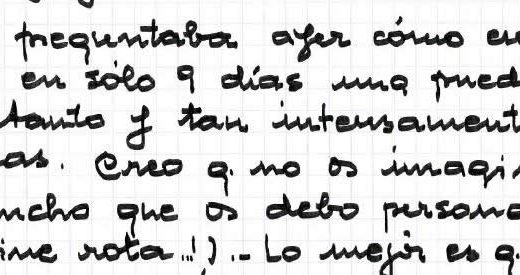 preguntaba ayer cómo en
en sólo 9 días una pued
tanto y tan intensament
as. Creo q. no os imagi
ucho que os debo persona
ine rota...!). - Lo mejor es q